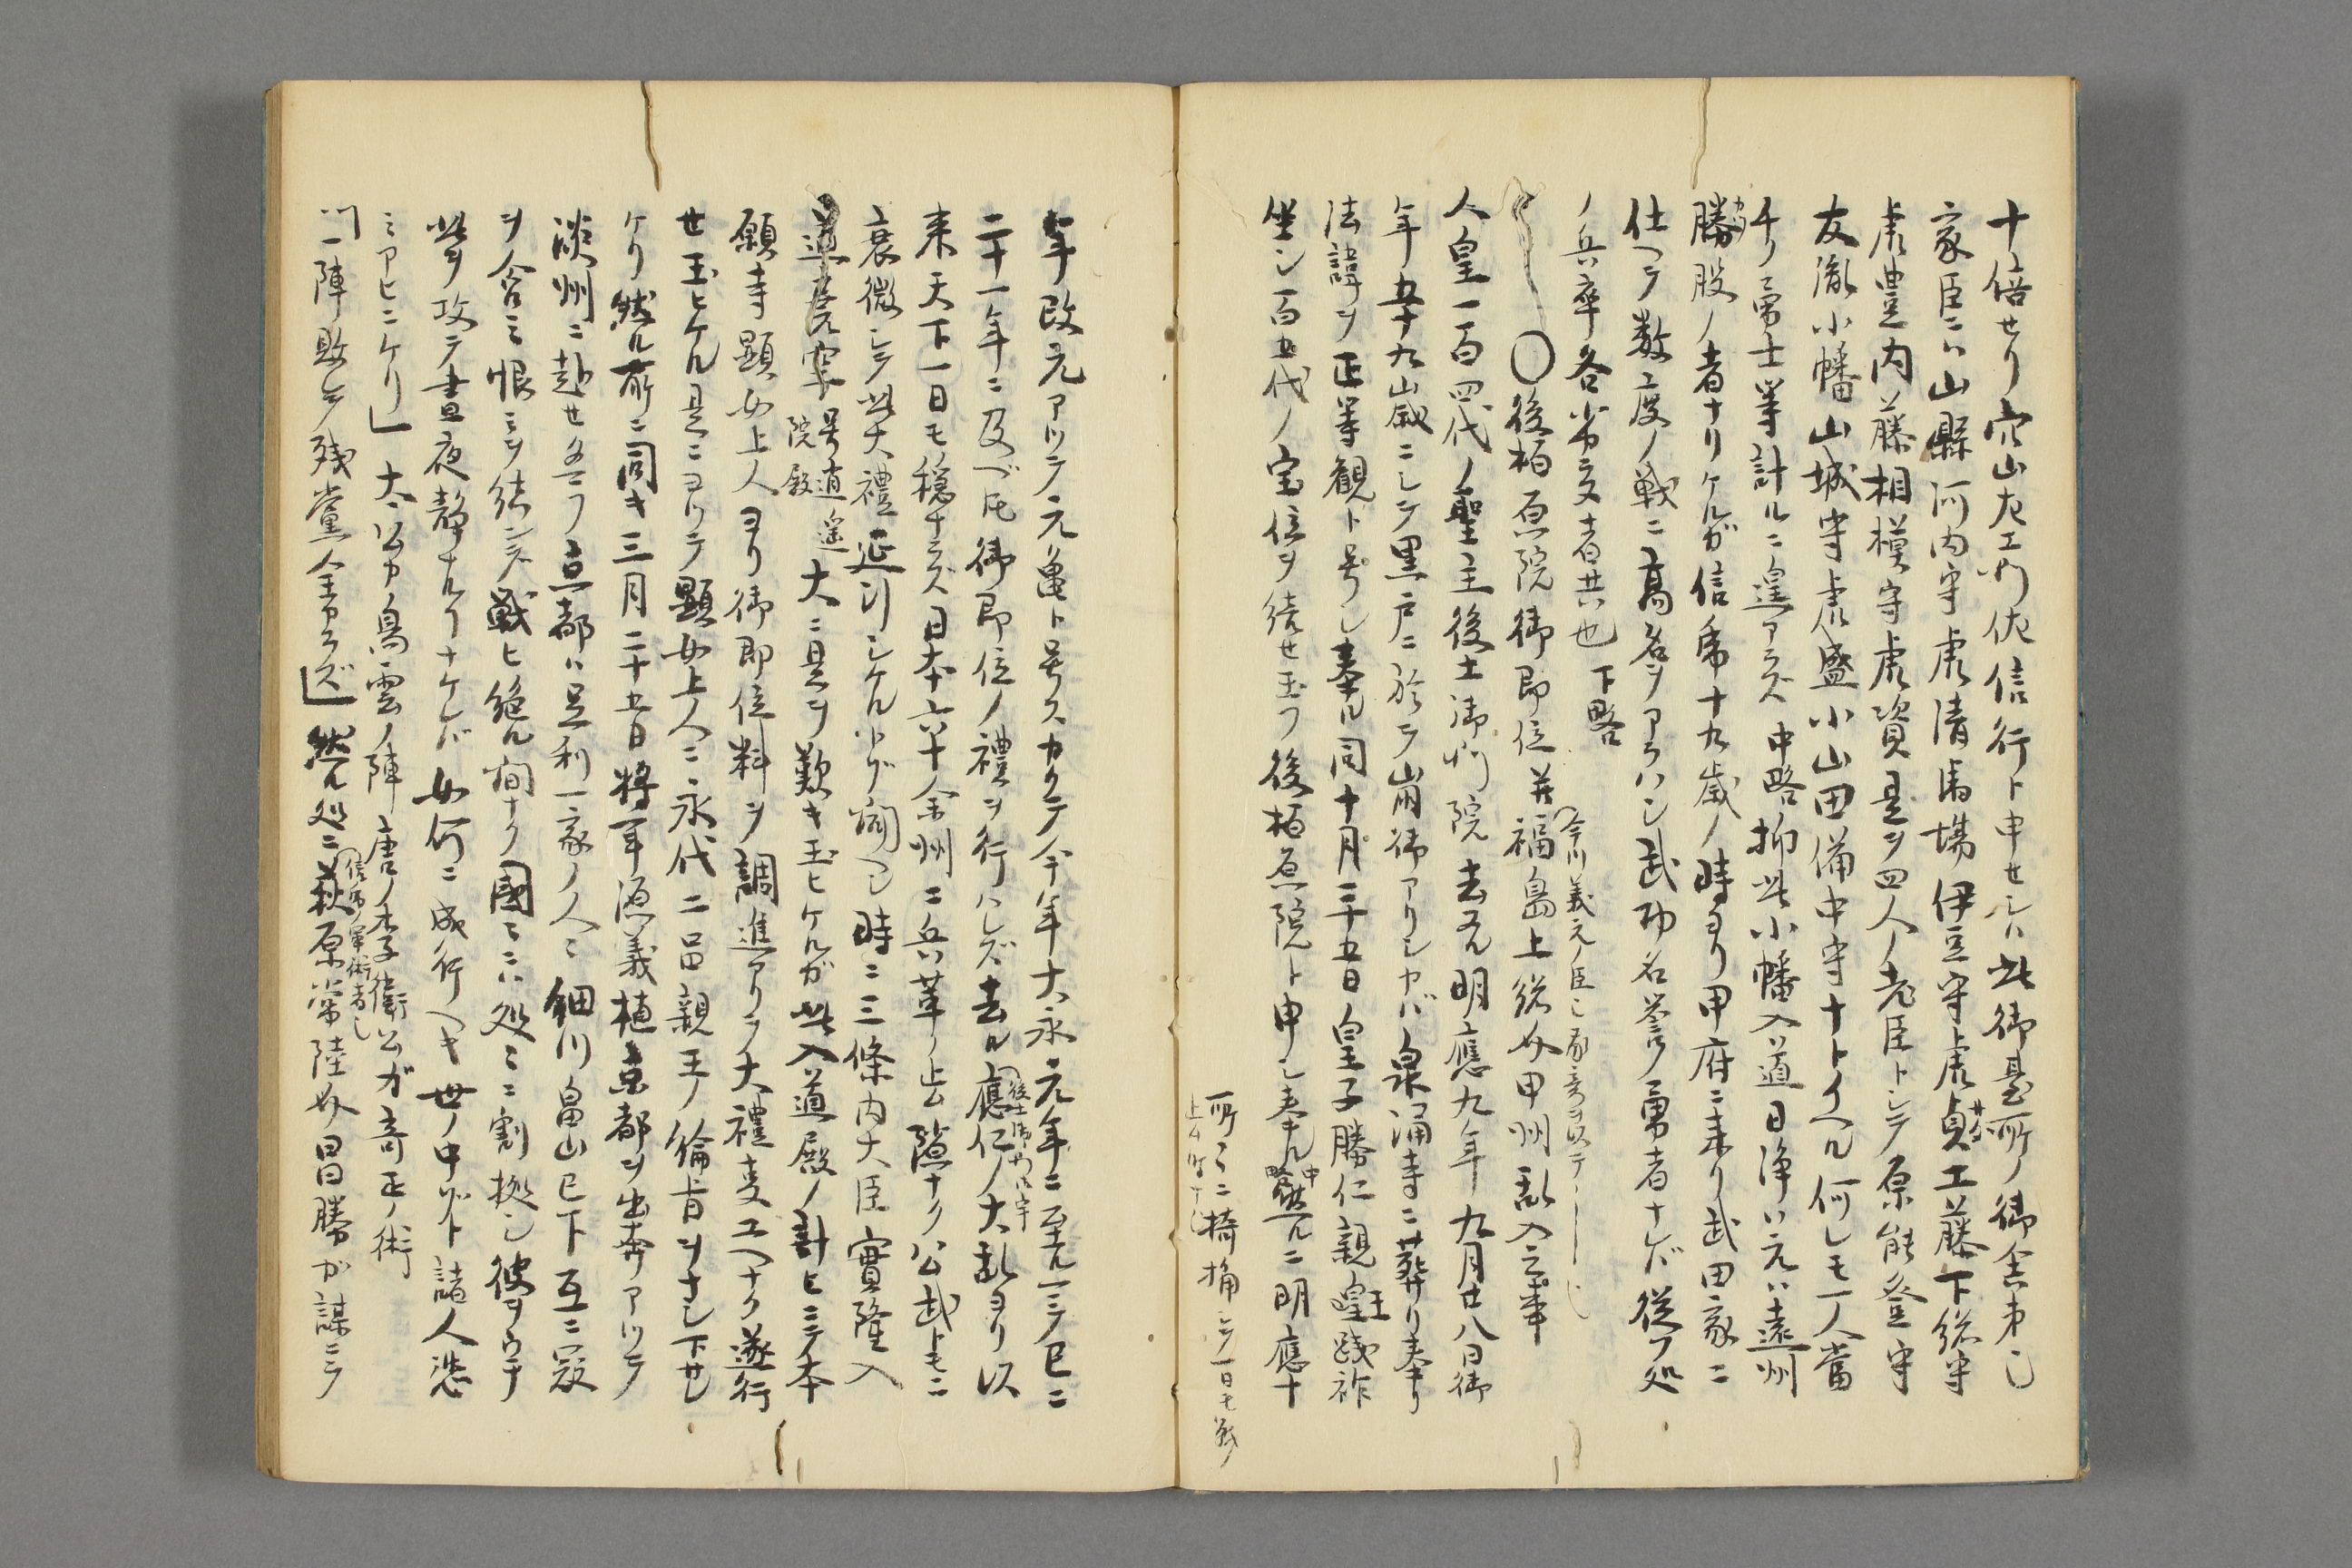 十倍セリ穴山左エ門佐信行ト申セシハ此御臺所ノ御舎弟也
家臣ニハ山縣河内守虎清馬場伊豆守虎貞工藤下総守
虎豊内藤相模守虎資是ヲ四人ノ老臣トシテ原能登守
友胤小幡山城守虎盛小山田備中守ナトイヘル何レモ一人當
千ノ勇士等計ルニ遑アラズ中略抑此小幡入道日浄ハ元ハ遠州
勝股ノ者ナリケルガ信虎十九歳ノ時ヨリ甲府ニ来リ武田家ニ
仕ヘテ数度ノ戦ニ高名ヲアラハシ武功名誉ノ勇者ナレバ従フ処
ノ兵卒各皆交者共也下略
今川義元ノ臣也
〇後柏原院御即位并福島上総介甲州乱入之事
人皇一百四代ノ聖主後土御門院去ル明應九年九月廿八日御
年五十九歳ニシテ黒戸ニ於テ崩御アリシカバ泉涌寺ニ葬リ奉リ
法諱ヲ正等観ト号シ奉ル同十月二十五日皇子勝仁親王踐祚
坐シ一百五代ノ宝位ヲ続セ玉フ後柏原院ト申シ奉ル中略然ルニ明應十
所々ニ楯桶シテ一日モ戦
年改元アツテ元亀ト号スカクテ今年大永元年ニ至ル迄已ニ
二十一年ニ及ベ圧御即位ノ禮ヲ行ハレズ去ル應仁ノ大乱ヨリ以
来天下一日モ穏ナラズ日本六十余州ニ兵革ノ止隙ナク公武トモニ
衰微シテ此大禮延引シケル時ニ三條内大臣實隆入
道堯空号逍遥院殿大ニ是ヲ歎キ玉ヒケルガ此入道殿ノ計ヒニテ本
願寺顕如上人ヨリ御即位料ヲ調進アリテ大禮事ユヘナク遂行
セ玉ヒケル是ニヨリテ顕如上人ニ永代二品親王ノ綸旨ヲナシ下サレ
ケリ然ル所ニ同キ三月二十五日将軍源義植京都ヲ出奔アツテ
淡州ニ赴セ玉フ京都ハ足利一家ノ人々細川畠山已下互ニ寇
ヲ含ミ恨ミヲ結ンデ戦ヒ絶ル間ナク國々ニハ処々ニ割拠シ彼ヲウテ
此ヲ攻テ昼夜静ナル事ナケレバ如何ニ成行ヘキ世ノ中ゾト諸人愁
ミアヒニケリ」太公カ鳥雲ノ陣唐ノ李衛公ガ奇正ノ術
一陣敗テ残黨全カラズ」然ル処ニ萩原常陸介昌勝が謀ニテ
信虎ノ軍術者也